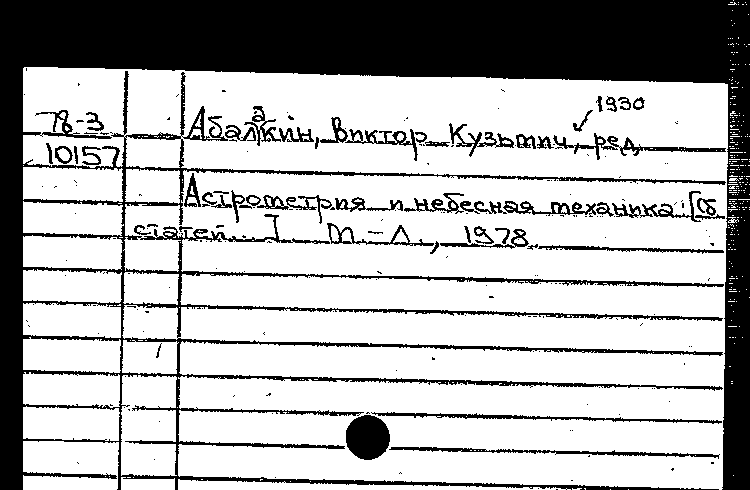 1930
78-3 Абалакин, Виктор Кузьмич, ред.
10157
Астрометрия и небесная механика: [Сб
статей... ] М.-Л., 1978.